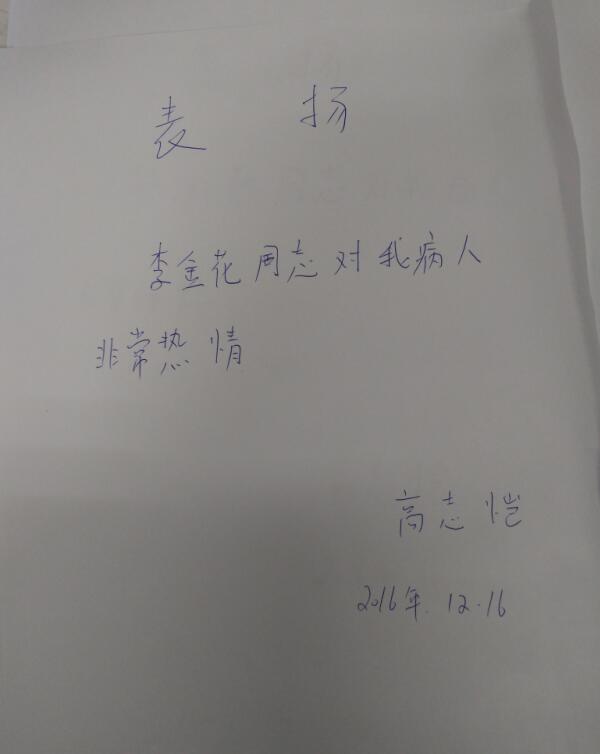 表扬
李金花同志对我病人
非常热情
高志恺
2016年.12.16